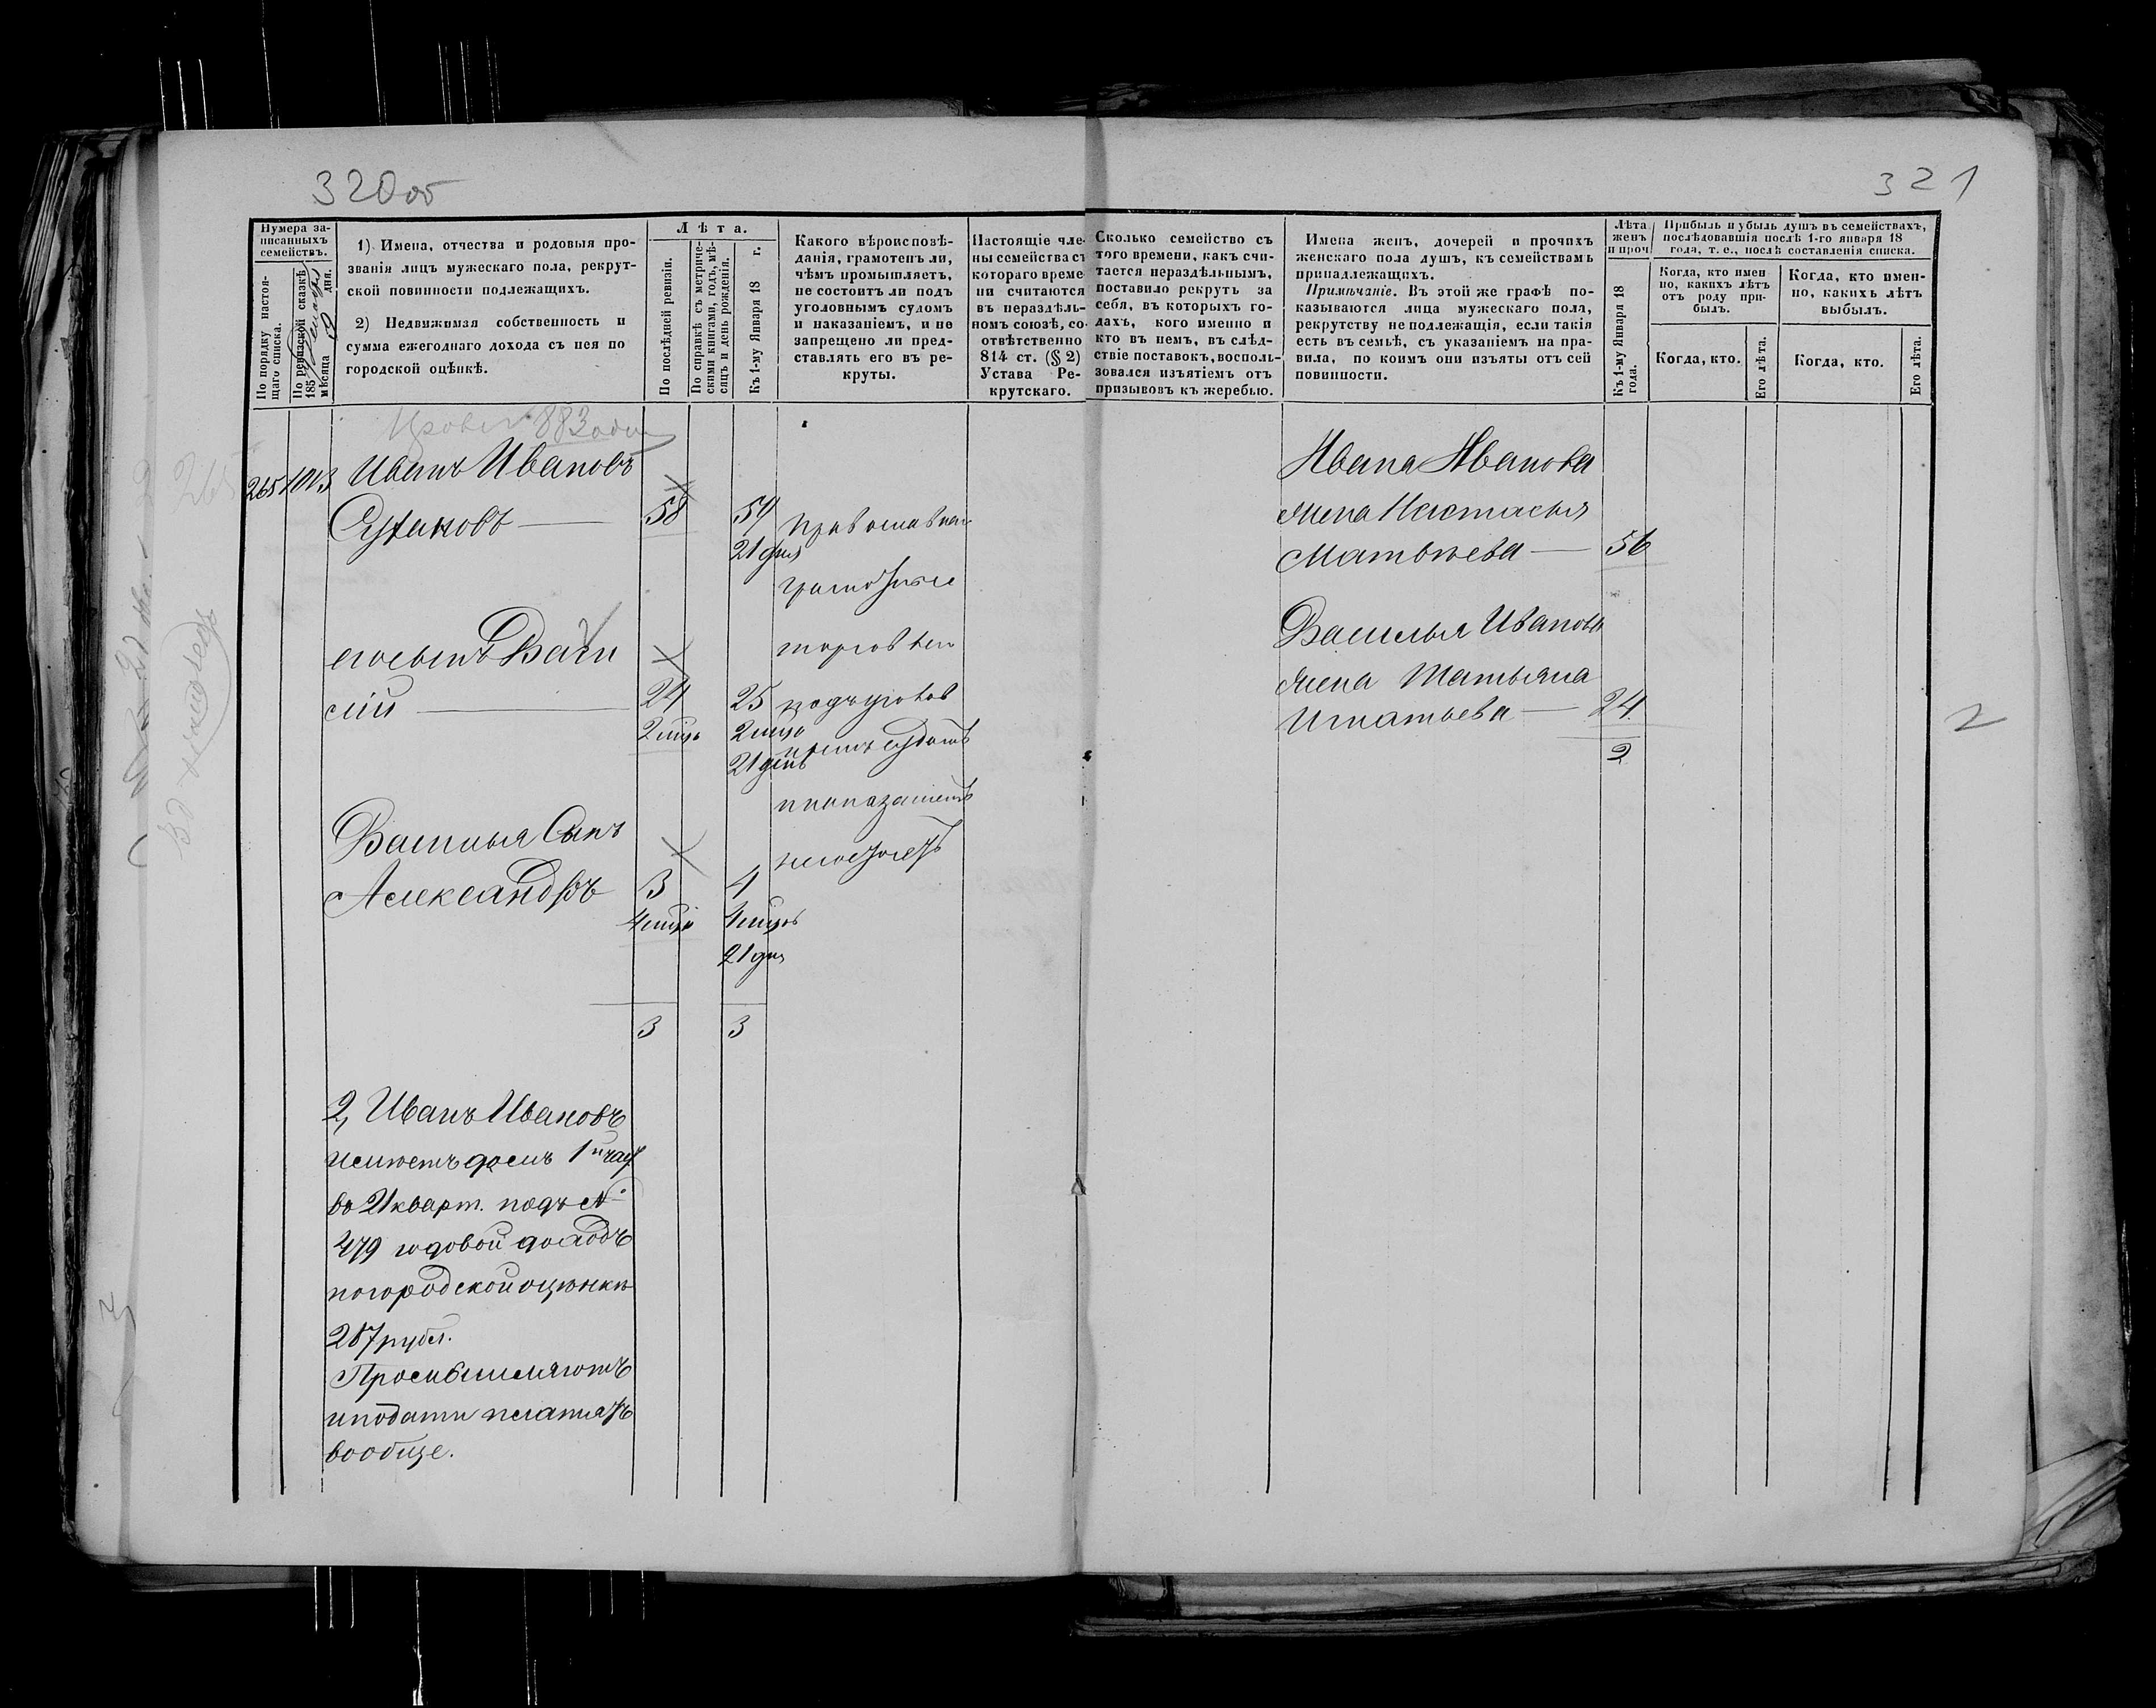 320 об
321
Нумера за-
писанныхъ
семействъ.
По порядку настоя-
щаго списка.
По ревизской сказкѣ
185
мѣсяца
дня.
1) Имена, отчества и родовыя про-
званія лицъ мужескаго пола, рекрут-
ской повинности подлежащихъ.
2) Недвижимая собственность и
сумма ежегоднаго дохода съ нея по
городской оцѣнкѣ.
Лѣта.
По послѣдней ревизіи.
По справкѣ съ метриче-
скими книгами, годъ, мѣ-
сяцъ и день рожденія.
Къ 1-му Января 18 г.
Какого вѣроисповѣ-
данія, грамотенъ ли,
чѣмъ промышляетъ,
не состоитъ ли подъ
уголовнымъ судомъ
и наказаніемъ, и не
запрещено ли пред-
ставлять его въ ре-
круты.
Настоящіе чле-
ны семейства съ
котораго време-
ни считаются
въ нераздѣль-
номъ союзѣ, со-
отвѣтственно
814 ст. (§ 2)
Устава Ре-
крутскаго.
Сколько семейство съ
того времени, какъ счи-
тается нераздѣльнымъ,
поставило рекрутъ за
себя, въ которыхъ го-
дахъ, кого именно и
кто въ немъ, въ слѣд-
ствіе поставокъ, восполь-
зовался изъятіемъ отъ
призывовъ къ жеребью.
Имена женъ, дочерей и прочихъ
женскаго пола душъ, къ семействамъ
принадлежащихъ.
Примѣчаніе. Въ этой же графѣ по-
казываются лица мужескаго пола,
рекрутству не подлежащія, если такія
есть въ семьѣ, съ указаніемъ на пра-
вила, по коимъ они изъяты отъ сей
повинности.
Лѣта
женъ
и проч
Къ 1-му Января 18
года.
Прибыль и убыль душъ въ семействахъ,
послѣдовавшія послѣ 1-го января 18
года, т. е., послѣ составленія списка.
Когда, кто имен
но, какихъ лѣтъ
отъ роду при-
былъ.
Когда, кто имен-
но, какихъ лѣтъ
выбылъ.
Когда, кто.
Его лѣта.
Когда, кто.
Его лѣта.
265
265 1013 Иванъ Ивановъ
58 59
21 дня
Православн
грамотные
торговлею
подъ уголов
нымъ судомъ
и наказаніемъ
несостоятъ
его сынъ Васи
лій
24
2 мца
25
2 мца
21 день
Василья Сынъ
Александръ
3
4 мца
4
4 мцов
21 дня
3 3
2, Иванъ Ивановъ
имѣетъ домъ 1й част
во 2 кварт. подъ №
479 годовой доходъ
по городской оцѣнкѣ
287 рубл.
Промышляютъ
и подати платятъ
вообще.
Ивана Иванова
жена Настасья
Матвѣева 56
Василья Иванова
жена Татьяна
Игнатьева 24
2
2